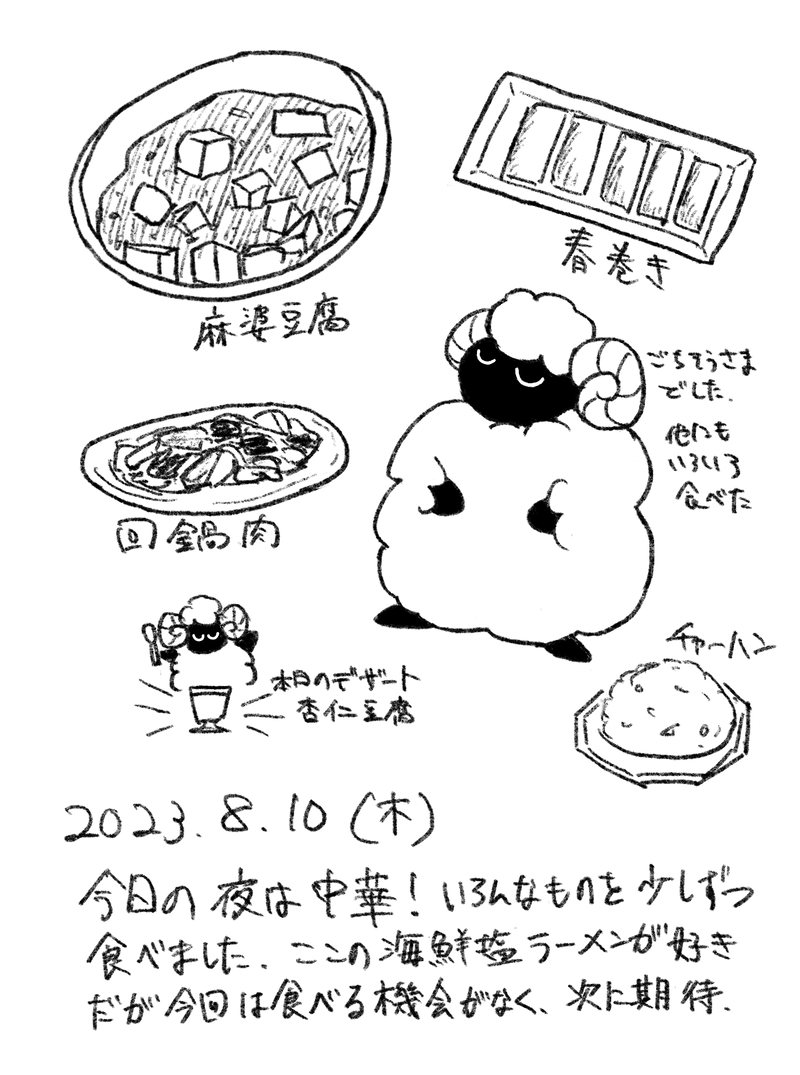 春巻き
麻婆豆腐
ごちそうさま
でした.
他にも
いろいろ
食べた
回鍋肉
チャーハン
本日のデザート
杏仁豆腐
2023.8.10(木)
今日の夜は中華!いろんなものを少しずつ
食べました.ここの海鮮塩ラーメンが好き
だが今回は食べる機会がなく、次に期待.